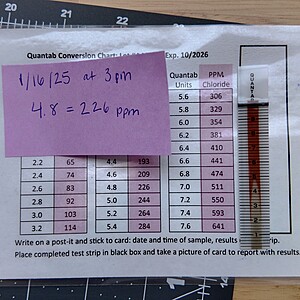 Quantab Conversion Chart: Lot Exp. 10/2026
1/16/25 at 3pm
4.8 = 226 ppm
Quantab Units PPM Chloride
5.6 306
5.8 329
6.0 354
6.2 381
6.4 410
2.2 65 4.4 193 6.6 441
2.4 74 4.6 209 6.8 474
2.6 83 4.8 226 7.0 511
2.8 92 5.0 244 7.2 550
3.0 103 5.2 264 7.4 593
3.2 114 5.4 284 7.6 641
Write on a post-it and stick to card: date and time of sample, results strip.
Place completed test strip in black box and take a picture of card to report with results.